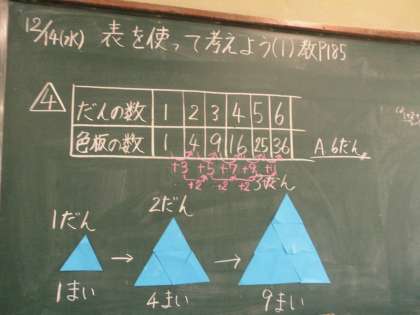 12/14(水) 表を使って考えよう(1) 教P185
4
だんの数 1 2 3 4 5 6
色板の数 1 4 9 16 25 36 A 6だん
+3 +5 +7 +9
+2 +2 +2
3だん
2だん
1だん
1まい → 4まい → 9まい